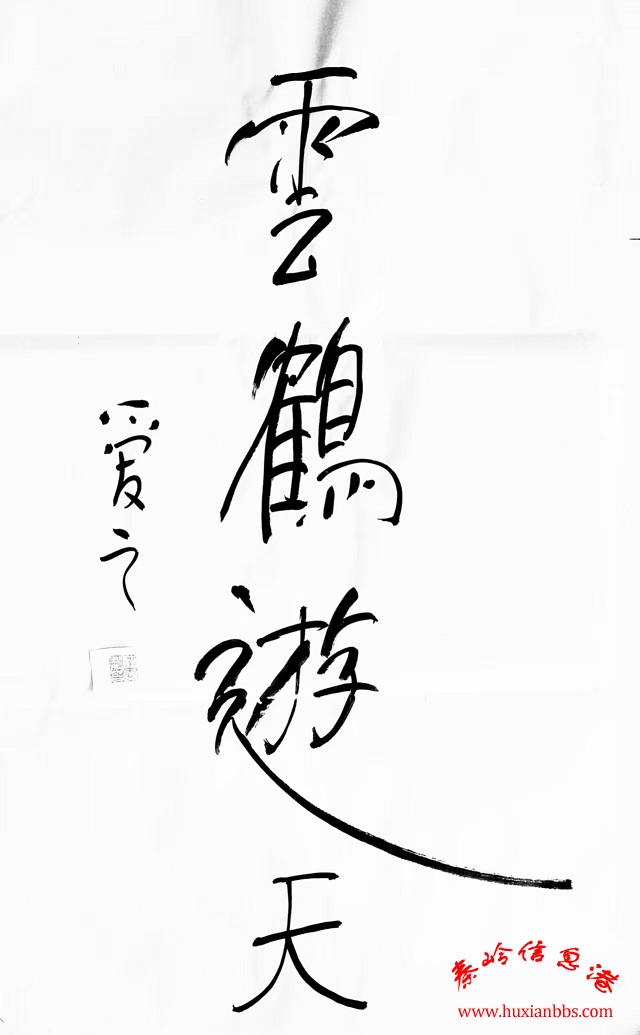 雲鶴遊天
愛之
秦岭信息港
www.huxianbbs.com